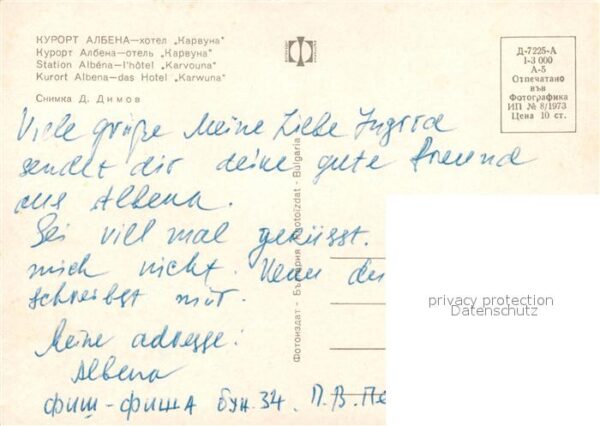 КУРОРТ АЛБЕНА—хотел „Карвуна“
Курорт Албена—отель „Карвуна“
Station Albéna—l'hôtel „Karvouna“
Kurort Albena—das Hotel „Karwuna“
Снимка Д. Димов
Д-7225-А
1-3 000
А-5
Отпечатано
във
Фотографика
ИП № 8/1973
Цена 10 ст.
Viele grüße Meine Liebe Ingrid
sendet dir deine gute freund
aus Albena.
Sei vill mal geküsst.
mich nicht. Wenn du
schreibst mir.
Meine adresse:
Albena
фиш-фиша бун. 34. П.В.Пе
Фотоиздат - България Fotoizdat - Bulgaria
privacy protection
Datenschutz